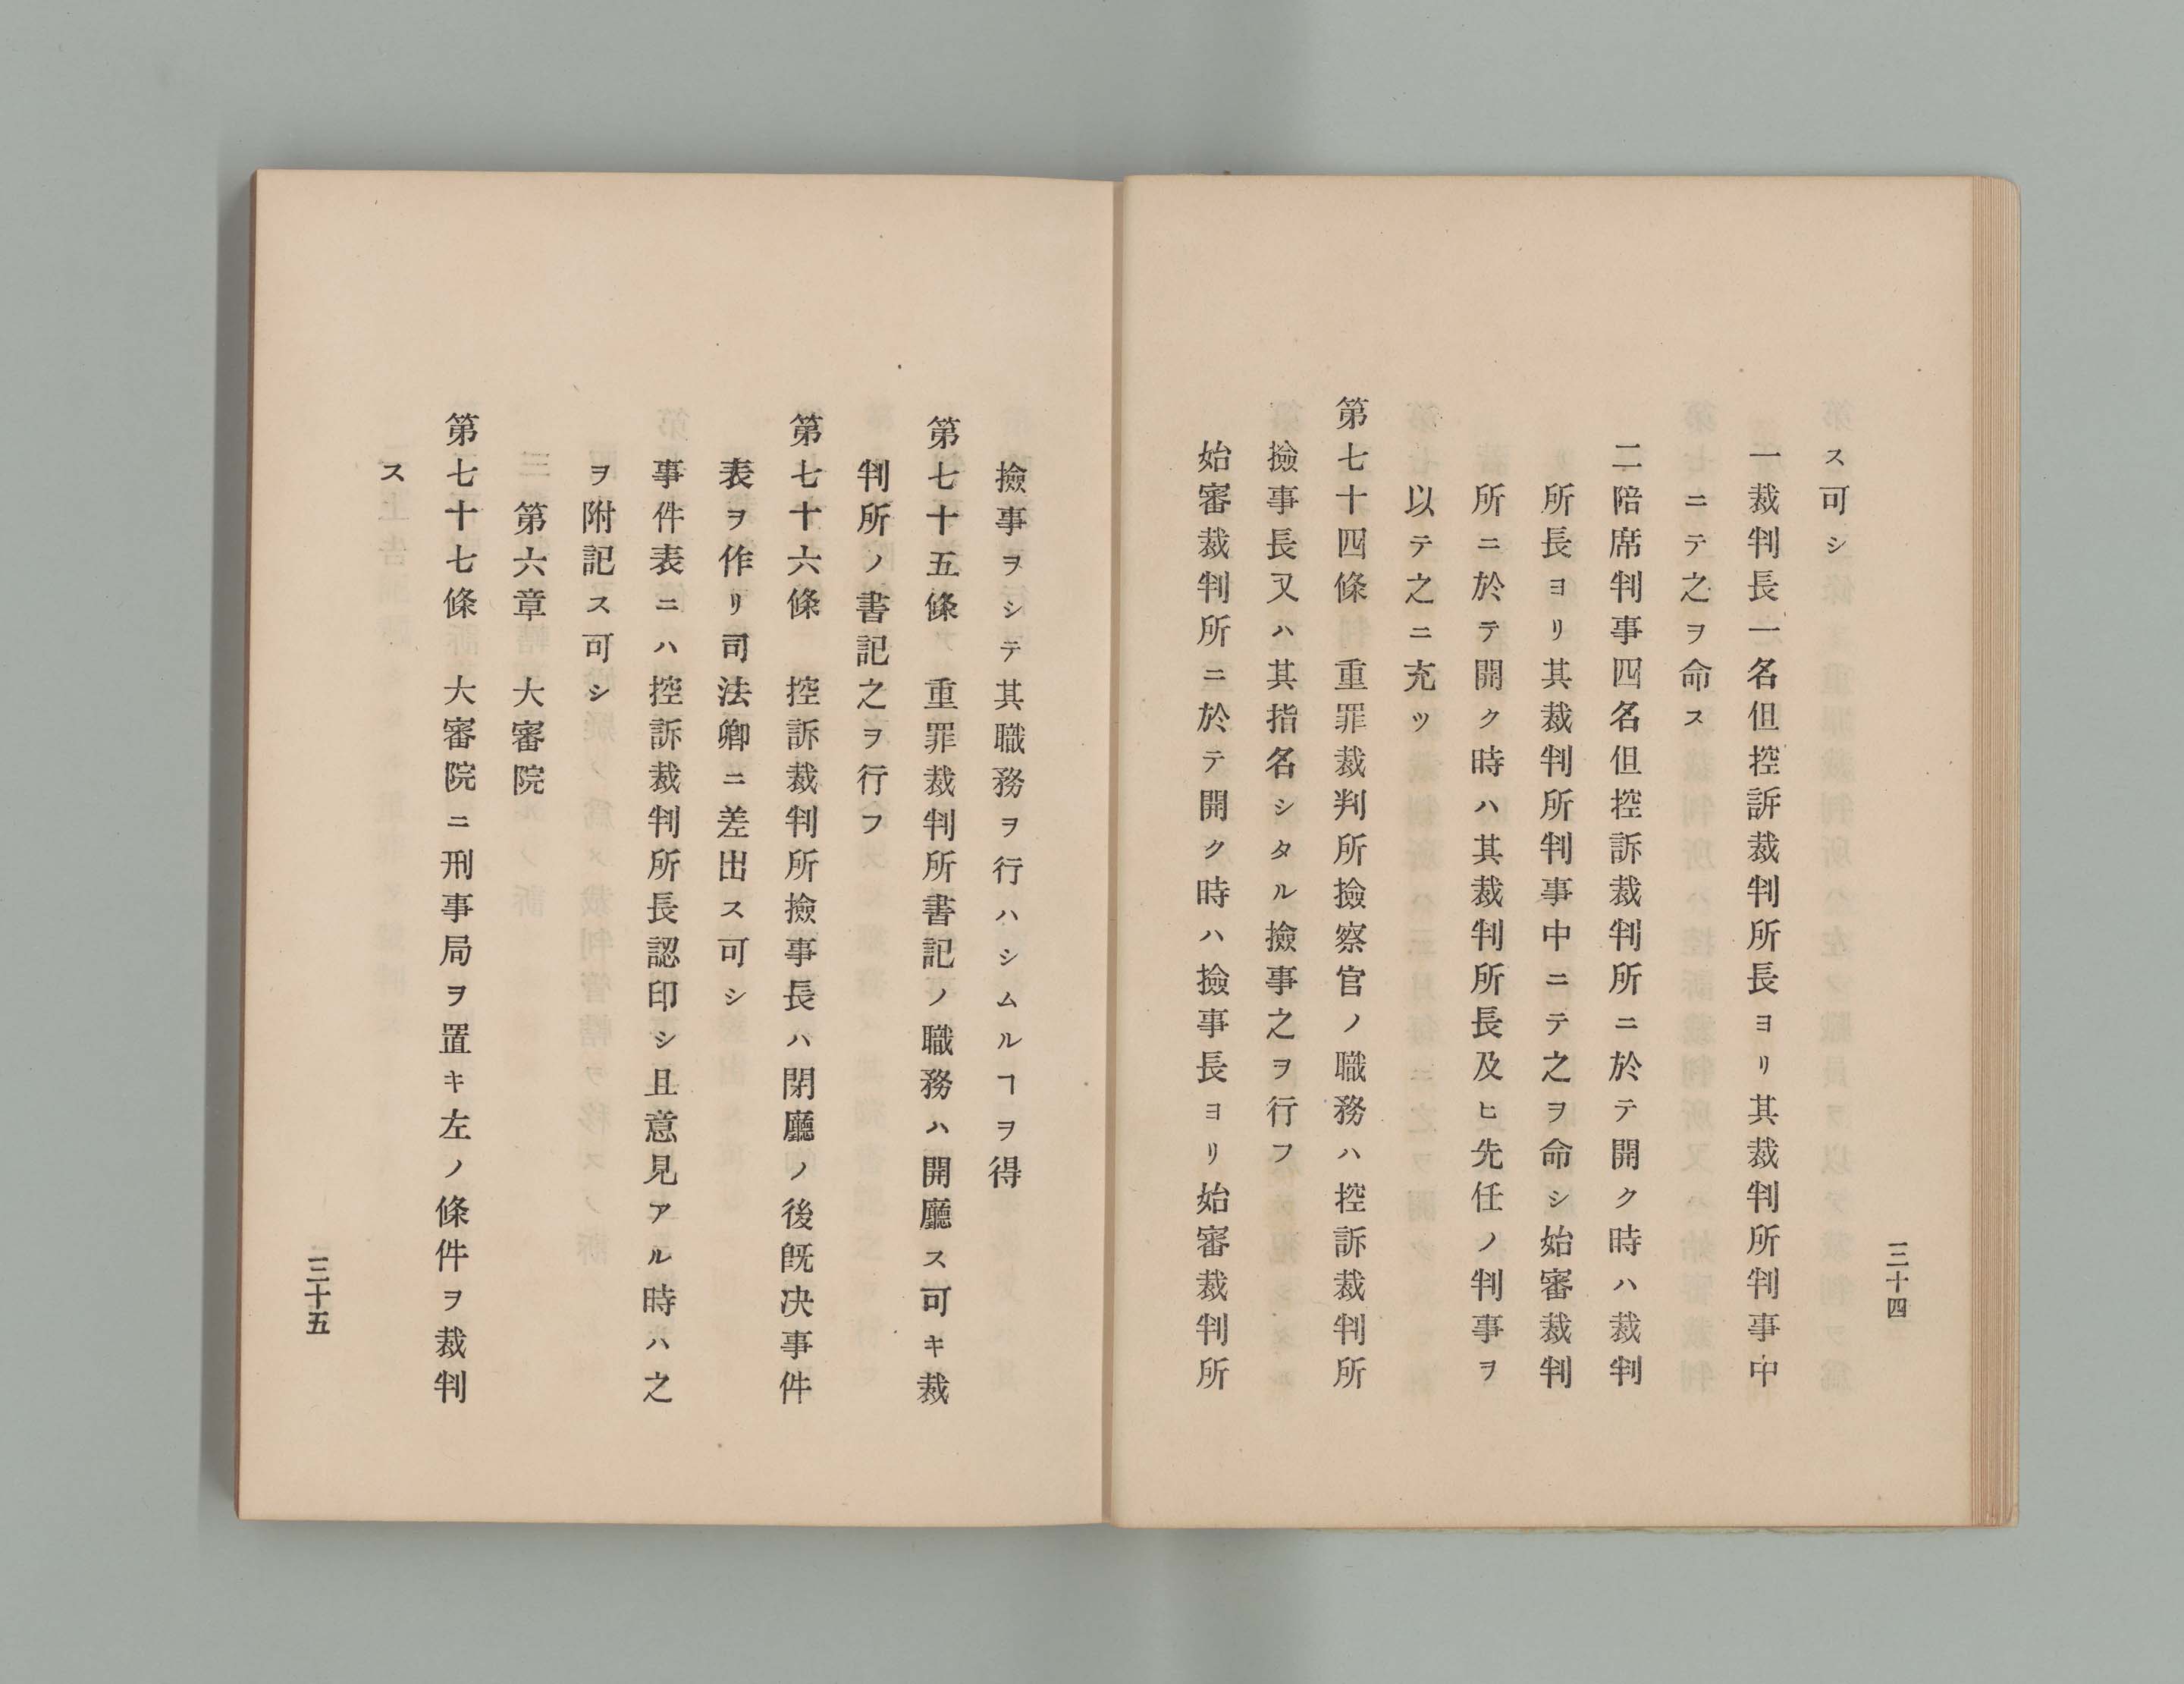 三十四
ス可シ
一裁判長一名但控訴裁判所長ヨリ其裁判所判事中
ニテ之ヲ命ス
二陪席判事四名但控訴裁判所ニ於テ開ク時ハ裁判
所長ヨリ其裁判所判事中ニテ之ヲ命シ始審裁判
所ニ於テ開ク時ハ其裁判所長及ヒ先任ノ判事ヲ
以テ之ニ充ツ
第七十四條 重罪裁判所撿察官ノ職務ハ控訴裁判所
撿事長又ハ其指名シタル撿事之ヲ行フ
始審裁判所ニ於テ開ク時ハ撿事長ヨリ始審裁判所
撿事ヲシテ其職務ヲ行ハシムルヿヲ得
第七十五條 重罪裁判所書記ノ職務ハ開廳ス可キ裁
判所ノ書記之ヲ行フ
第七十六條 控訴裁判所撿事長ハ閉廳ノ後旣决事件
表ヲ作リ司法卿ニ差出ス可シ
事件表ニハ控訴裁判所長認印シ且意見アル時ハ之
ヲ附記ス可シ
第六章 大審院
第七十七條 大審院ニ刑事局ヲ置キ左ノ條件ヲ裁判
ス
三十五